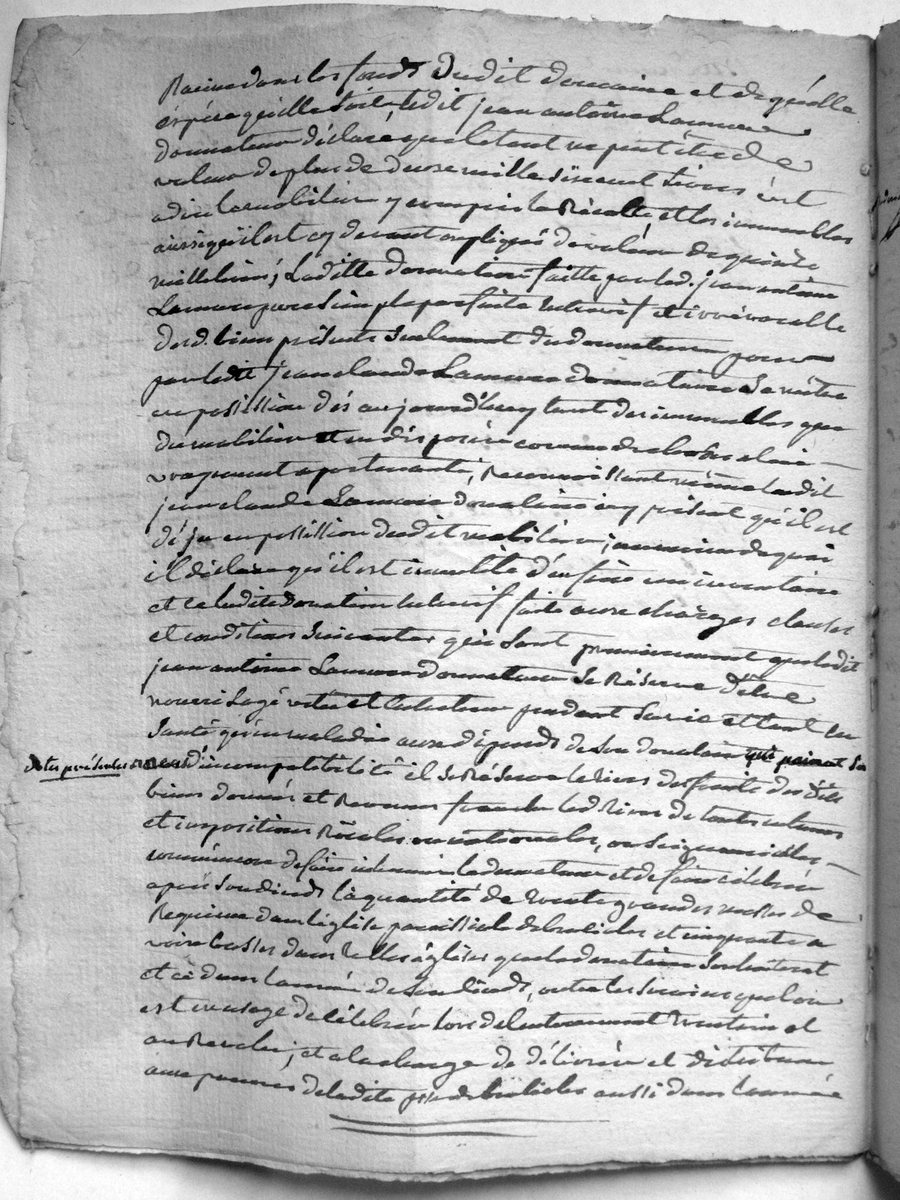 Racine dans les fonds Dudit domaine et de quélle
éspéce quélle soit, ledit jean antoine Lamure
donnateur déclaré que le tout ne peut être de
valeur de plus de douze mille six cent livres c'est
a dire le mobilier y compris la Récolte et les immeubles
ainsi qu'il est cy devant expliqués de valeur de quinze
mille livres; Laditte donnation faitte par led. jean antoine
Lamure pure simple parfaite entrevif et irrévocable
desd. biens présents seulement du donnateur pour
par ledit jean claude Lamure donnataire se mettre
en possession dés aujourd'huy tant des immeubles que
du mobilier et en disposer comme de choses a lui
vrayment apartenante, Reconnoissant même ledit
jean claude Lamure donnataire icy présent qu'il est
déja en possession dudit mobilier, au moien de quoi
il déclare qu'il est inutile d'en faire un inventaire
et ce ladite donation entrevif faite aux charges clauses
et conditions suivantes qui sont premierement que ledit
jean antoine Lamure donnateur se Réserve d'être
nourri logé vétu et entretenu pendant sa vie et tant en
santé qu'en maladie aux dépends de son donataire qui
d'incompatibilité il se Réserve des fruits des dits
biens donnés et Revenus de toutes
et impositions Royales ou nationales, ou seigneurialles
et de faire célébrer
aprés son décéds la quantité de trente grandes messes de
Requiem dans l'église paroissiale et cinquante a
voix basses dans telles églises que le donataire
et ce dans l'année de son décéds, outre les services que l'on
est en usage de célébrer lors de l'enterrement trentain et
et a la charge de délivrer et distribuer
aux pauvres de ladite aussi dans l'année